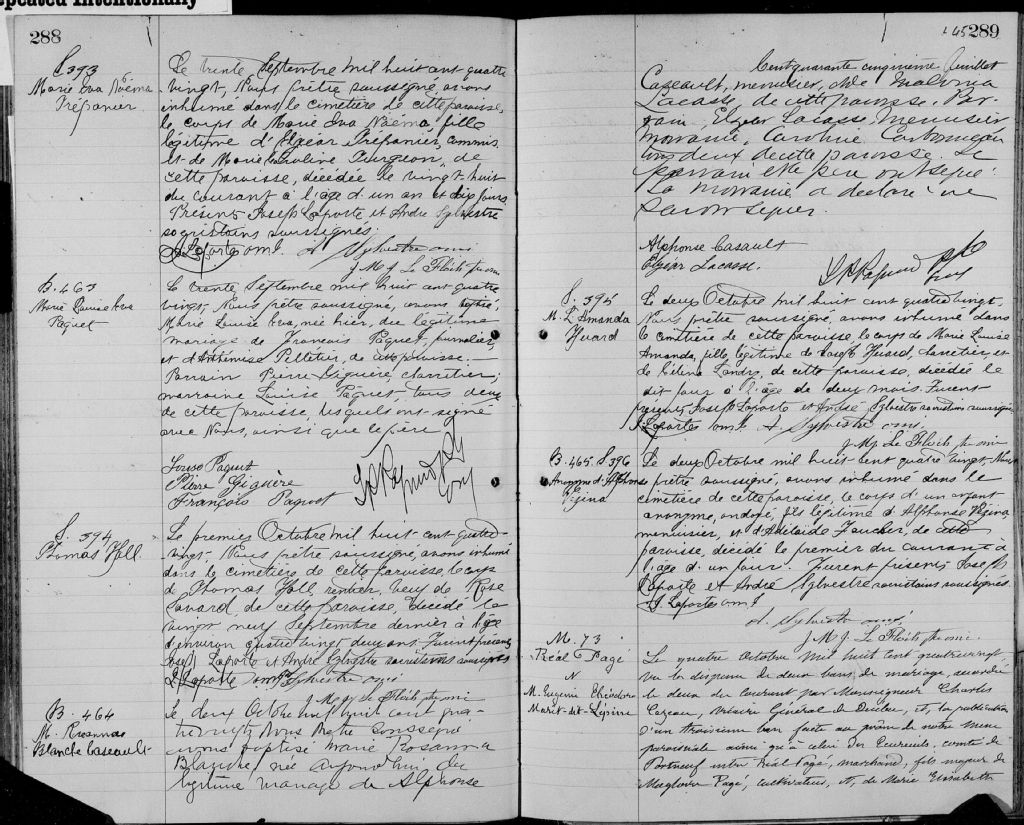 Repeated Intentionally
288
S. 393
Marie Eva Noëma
Trépanier
Le trente Septembre mil huit cent quatre
vingt, Nous prêtre soussigné, avons
inhumé dans le cimetière de cette paroisse,
le corps de Marie Eva Noéma, fille
légitime d'Elzéar Trépanier, commis
et de Marie Caroline Turgeon, de
cette paroisse, décédée le vingt-huit
du courant à l'âge d'un an et dix jours.
Présents Joseph Laporte et André Sylvestre
sacristains soussignés.
J. Laporte omi. A. Sylvestre omi
J. M. J. Le Floch ptr. omi
B. 463
Marie Louise Eva
Paquet
Le trente Septembre mil huit cent quatre
vingt, Nous prêtre soussigné, avons baptisé
Marie Louise Eva, née hier, du légitime
mariage de François Paquet, journalier,
et d'Arthémise Pelletier, de cette paroisse.
Parrain Pierre Giguère, charretier,
marraine Louise Paquet, tous deux
de cette paroisse, lesquels ont signé
avec Nous, ainsi que le père.
Louise Paquet
Pierre Giguère
François Paquet
S. 394
Thomas Hall
Le premier Octobre mil huit cent quatre-
vingt, Nous prêtre soussigné, avons inhumé
dans le cimetière de cette paroisse, le corps
de Thomas Hall, rentier, veuf de Rose
Savard de cette paroisse, décédé le
vingt neuf Septembre dernier à l'âge
d'environ quatre vingt deux ans. Furent présents
Joseph Laporte et André Sylvestre sacristains soussignés
J. Laporte omi A. Sylvestre omi
J. M. J. Le Floch ptr. omi
B. 464
M. Rosanna
Blanche Caseault
Le deux Octobre mil huit cent qua-
tre vingt, Nous Prêtre soussigné
avons baptisé Marie Rosanna
Blanche, née aujourd'hui du
légitime mariage de Alphonse
145 289
Cent quarante cinquième feuillet
Caseault, menuisier, et de Malvina
Lacasse, de cette paroisse. Par-
rain Elzéar Lacasse menuisier
marraine, Caroline
tous deux de cette paroisse. Le
parrain et le père ont signé.
La marraine a déclaré ne
savoir signer.
Alphonse Casault
Elzéar Lacasse.
S. 395
M. L. Amanda
Huard
Le deux Octobre mil huit cent quatre vingt,
Nous prêtre soussigné, avons inhumé dans
le cimetière de cette paroisse, le corps de Marie Louise
Amanda, fille légitime de Joseph Huard, charretier, et
de Célena Landry, de cette paroisse, décédée le
dit jour à l'âge de deux mois. Furent
présents Joseph Laporte et André Sylvestre sacristains soussignés
J. Laporte omi. A. Sylvestre omi.
J. M. J. Le Floch ptr. omi
B. 465 S. 396
Anonyme d'Alphonse
Vézina
Le deux Octobre mil huit cent quatre vingt, Nous
prêtre soussigné, avons inhumé dans le
cimetière de cette paroisse, le corps d'un enfant
anonyme, ondoyé, fils légitime d'Alphonse Vézina,
menuisier, et d'Adélaïde Faucher, de cette
paroisse, décédé le premier du courant à
l'âge d'un jour. Furent présents Joseph
Laporte et André Sylvestre sacristains soussignés
J. Laporte omi
A. Sylvestre omi.
J. M. J. Le Floch ptr. omi.
M. 73
Réal Pagé
&
M. Eugenie Théodore
Maret-dit-Lépine
Le quatre Octobre mil huit cent quatre vingt
vu la dispense de deux bans de mariage, accordée
le deux du courant par Monseigneur Charles
Cazeau, Vicaire Général de Québec, et, la publication
d'un troisième ban faite au prône de notre messe
paroissiale ainsi qu'à celui des Ecureuils, comté de
Portneuf entre Réal Pagé, marchand, fils majeur de
Magloire Pagé, cultivateur, et, de Marie Elisabeth